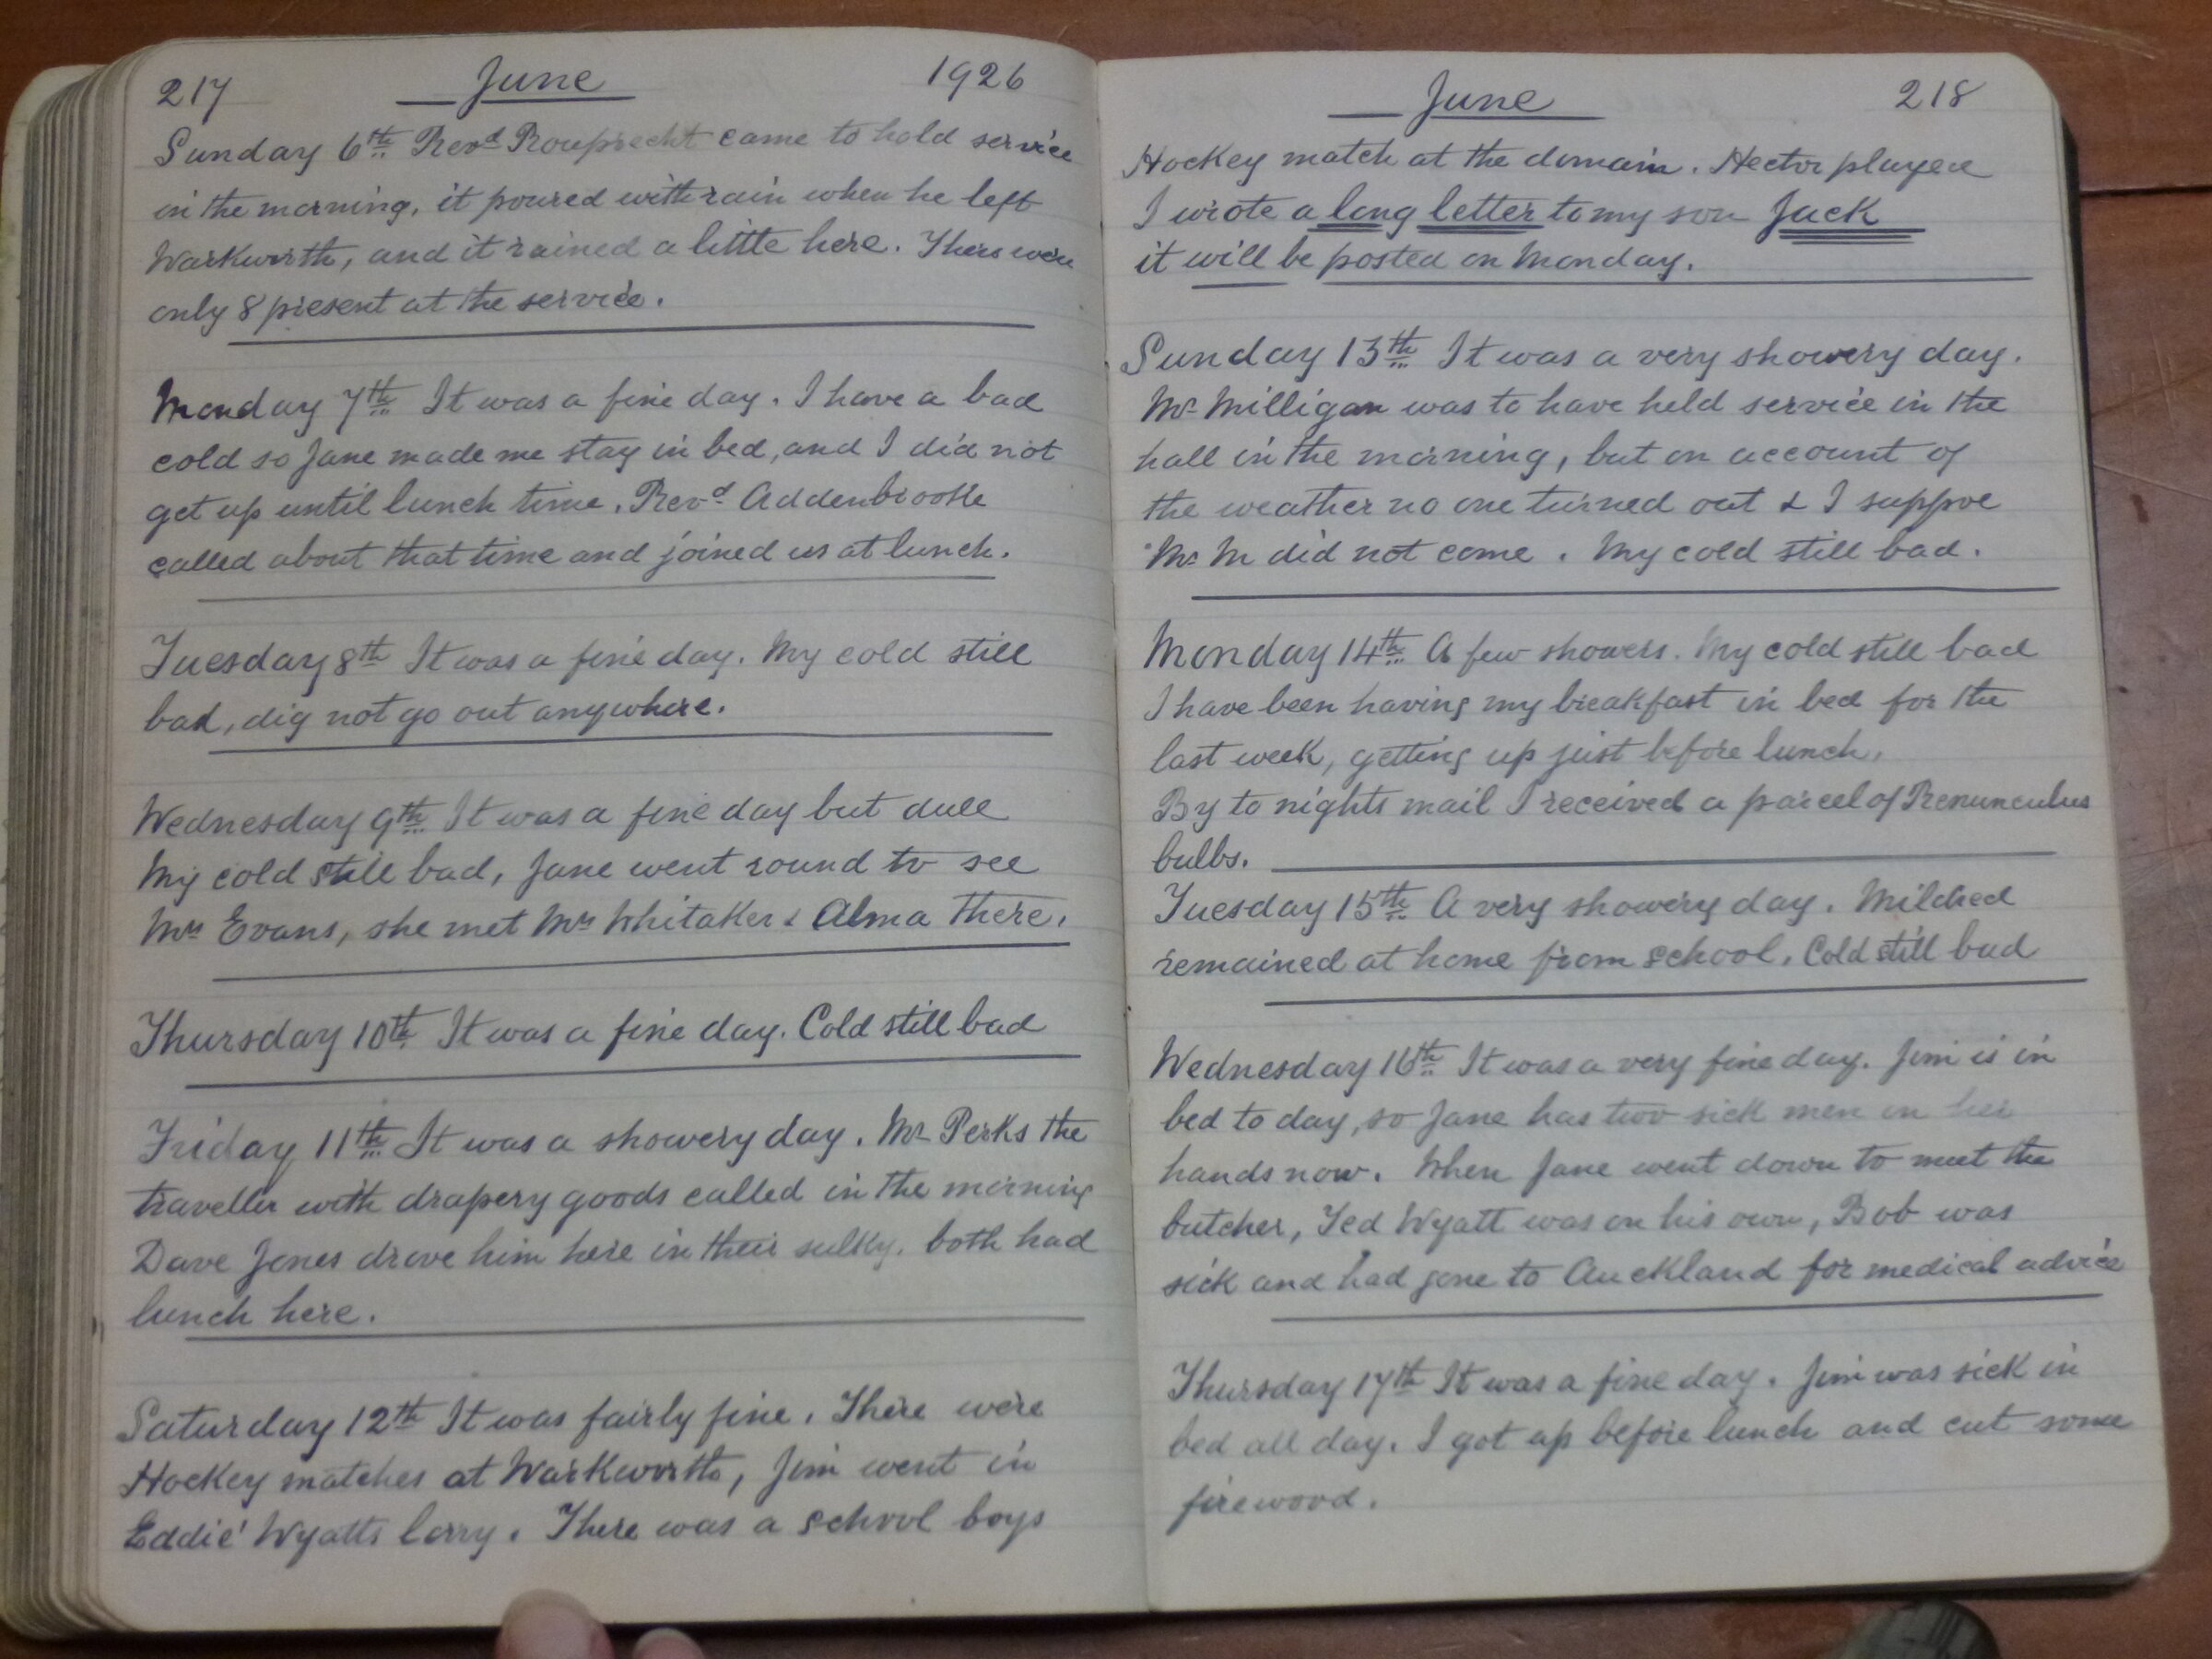 217 June 1926
Sunday 6th Revd Rouprecht came to hold service
in the morning, it poured with rain when he left
Warkworth, and it rained a little here. There were
only 8 present at the service.
Monday 7th It was a fine day. I have a bad
cold so Jane made me stay in bed, and I did not
get up until lunch time. Revd Addenbrooke
called about that time and joined us at lunch.
Tuesday 8th It was a fine day. My cold still
bad, dig not go out anywhere.
Wednesday 9th It was a fine day but dull
My cold still bad, Jane went round to see
Mrs Evans, she met Mrs Whitaker & Alma there.
Thursday 10th It was a fine day. Cold still bad
Friday 11th It was a showery day. Mr Perks the
traveller with drapery goods called in the morning
Dave Jones drove him here in their sulky. both had
lunch here.
Saturday 12th It was fairly fine. There were
Hockey matches at Warkworth, Jim went in
Eddie Wyatts lorry. There was a school boys
June 218
Hockey match at the domain. Hector played
I wrote a long letter to my son Jack
it will be posted on Monday.
Sunday 13th It was a very showery day.
Mr Milligan was to have held service in the
hall in the morning, but on account of
the weather no one turned out & I suppoe
Mr M did not come. My cold still bad.
Monday 14th A few showers. My cold still bad
I have been having my breakfast in bed for the
last week, getting up just before lunch.
By to nights mail I received a parcel of Renunculus
bulbs.
Tuesday 15th A very showery day. Mildred
remained at home from school. Cold still bad
Wednesday 16th It was a very fine day. Jim is in
bed to day, so Jane has two sick men on her
hands now. When Jane went down to meet the
butcher, Ted Wyatt was on his own, Bob was
sick and had gone to Auckland for medical advice
Thursday 17th It was a fine day. Jim was sick in
bed all day. I got up before lunch and cut some
firewood.